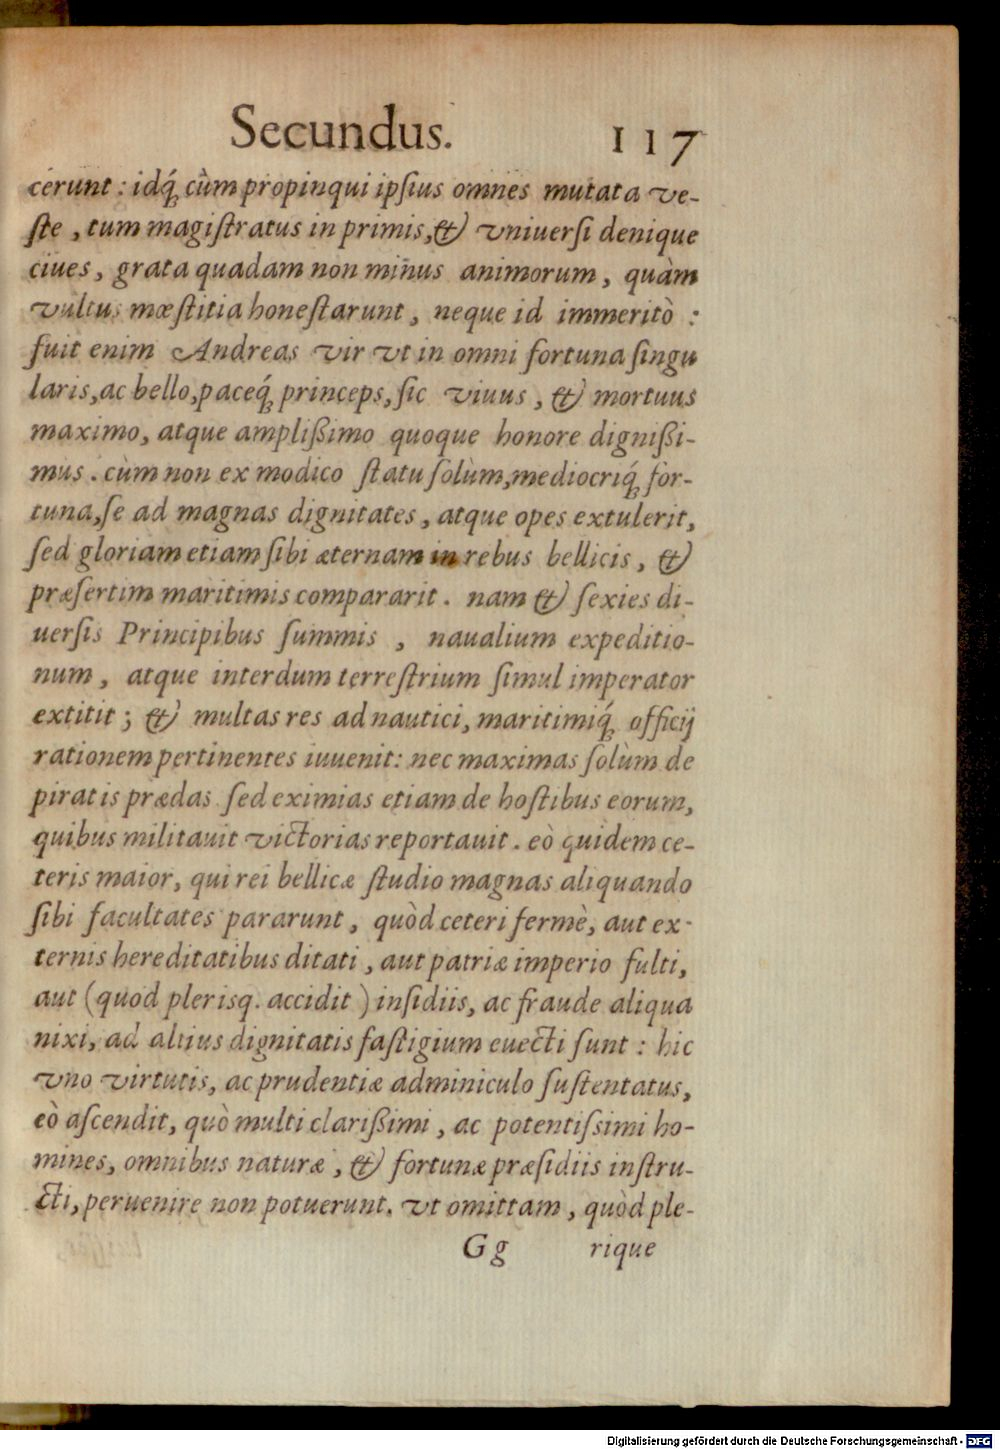 Secundus. 117
cerunt : idq́; cùm propinqui ipsius omnes mutata ve-
ste , tum magistratus in primis, & vniuersi denique
ciues, grata quadam non minus animorum, quàm
vultus mæstitia honestarunt, neque id immeritò :
fuit enim Andreas vir vt in omni fortuna singu
laris, ac bello, paceq́; princeps, sic viuus, & mortuus
maximo, atque amplißimo quoque honore dignißi-
mus . cùm non ex modico statu solùm, mediocriq́; for-
tuna, se ad magnas dignitates, atque opes extulerit,
sed gloriam etiam sibi æternam in rebus bellicis, &
præsertim maritimis compararit. nam & sexies di-
uersis Principibus summis , naualium expeditio-
num, atque interdum terrestrium simul imperator
extitit ; & multas res ad nautici, maritimiq́; officij
rationem pertinentes iuuenit: nec maximas solùm de
piratis prædas sed eximias etiam de hostibus eorum,
quibus militauit victorias reportauit. eò quidem ce-
teris maior, qui rei bellicæ studio magnas aliquando
sibi facultates pararunt, quòd ceteri fermè, aut ex-
ternis hereditatibus ditati, aut patriæ imperio fulti,
aut (quod plerisq. accidit) insidiis, ac fraude aliqua
nixi, ad altius dignitatis fastigium euecti sunt : hic
vno virtutis, ac prudentiæ adminiculo sustentatus,
eò ascendit, quò multi clarißimi, ac potentissimi ho-
mines, omnibus naturæ , & fortunæ præsidiis instru-
cti, peruenire non potuerunt. vt omittam, quòd ple-
Gg rique
Digitalisierung gefördert durch die Deutsche Forschungsgemeinschaft - DFG